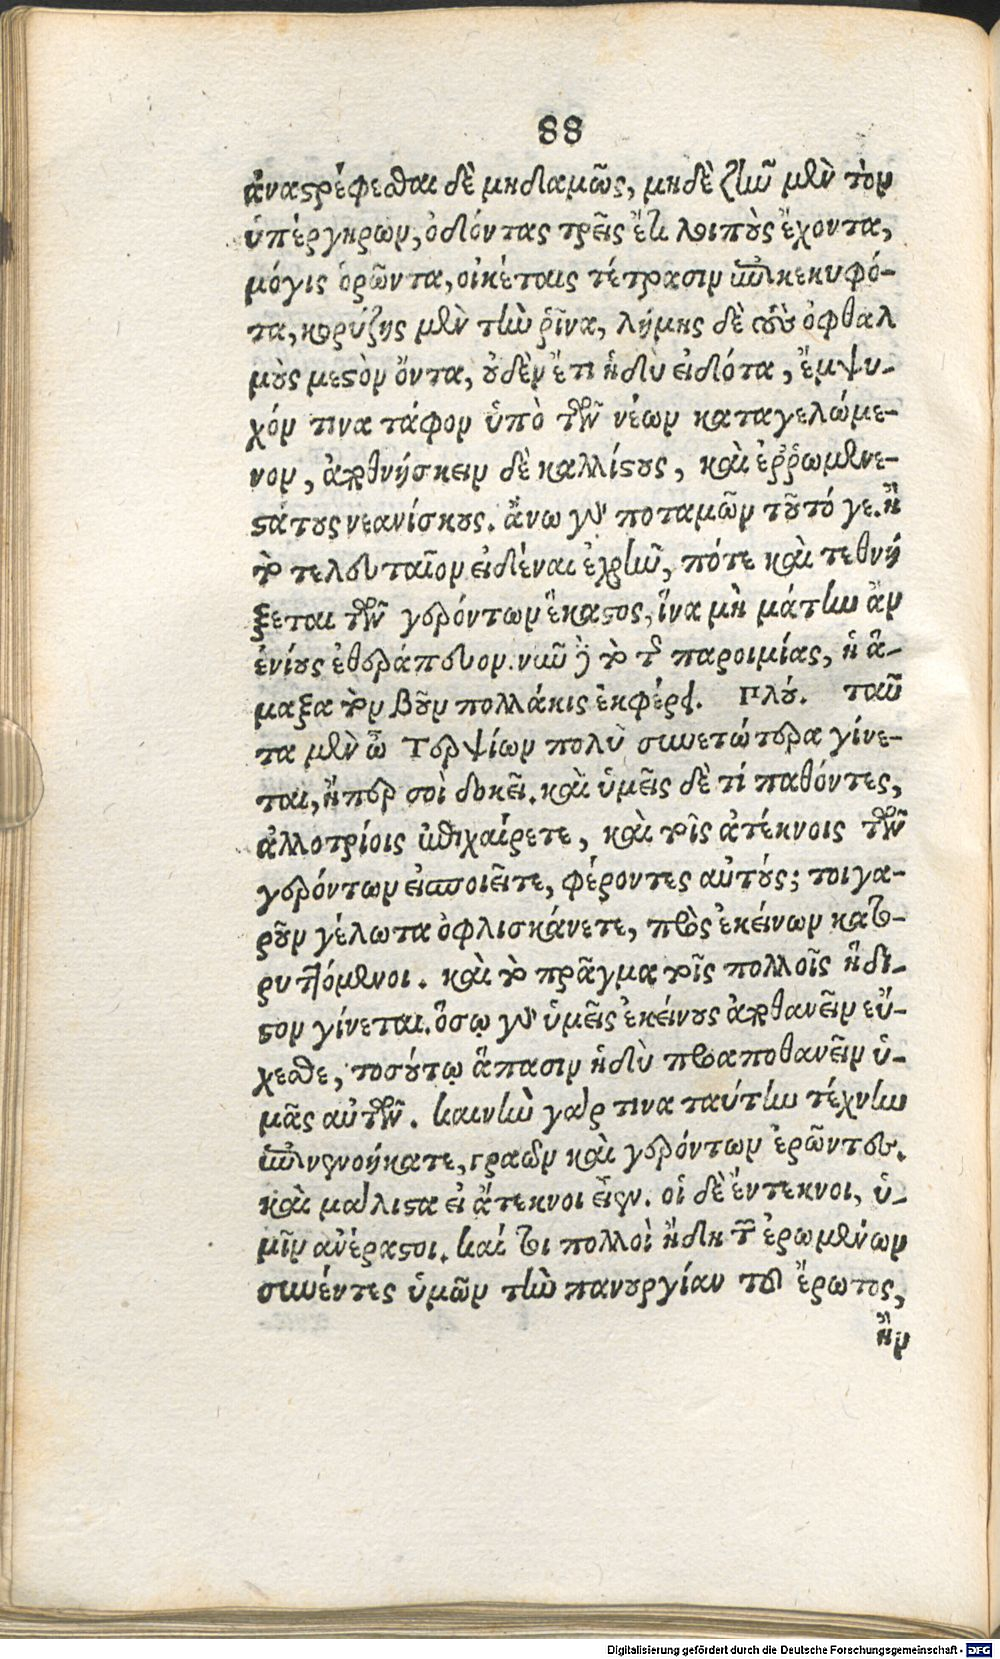 88
ἀναστρέφεσθαι δὲ μηδαμῶς, μηδὲ ζῆν μὲν τὸν
ὑπέργηρων, ὀδόντας τρεῖς ἔτι λοιποὺς ἔχοντα,
μόγις ὁρῶντα, οἰκέταις τέτρασιν ἐπικεκυφό-
τα, κορύζης μὲν τὴν ῥῖνα, λήμης δὲ τοὺς ὀφθαλ
μοὺς μεστὸν ὄντα, οὐδὲν ἔτι ἡδὺ εἰδότα, ἔμψυ-
χόν τινα τάφον ὑπὸ τῶν νέων καταγελώμε-
νον, ἀποθνήσκειν δὲ καλλίστους, καὶ ἐῤῥωμενε-
στάτους νεανίσκους. ἄνω γὰρ ποταμῶν τοῦτό γε. ἢ
τὸ τελευταῖον εἰδέναι ἐχρῆν, πότε καὶ τεθνή
ξεται τῶν γερόντων ἕκαστος, ἵνα μὴ μάτην ἂν
ἐνίους ἐθεράπευον. νῦν δὲ τὸ τῆς παροιμίας, ἡ ἅ-
μαξα τὸν βοῦν πολλάκις ἐκφέρει. Πλού. ταῦ
τα μὲν ὦ Τερψίων πολὺ συνετώτερα γίνε-
ται, ἤπερ σοὶ δοκεῖ. καὶ ὑμεῖς δὲ τί παθόντες,
ἀλλοτρίοις ἐπιχαίρετε, καὶ τοῖς ἀτέκνοις τῶν
γερόντων εἰσποιεῖτε, φέροντες αὑτούς; τοιγα-
ροῦν γέλωτα ὀφλισκάνετε, πρὸς ἐκείνων κατο-
ρυττόμενοι. καὶ τὸ πρᾶγμα τοῖς πολλοῖς ἥδι-
στον γίνεται. ὅσῳ γὰρ ὑμεῖς ἐκείνους ἀποθανεῖν εὔ-
χεσθε, τοσούτῳ ἅπασιν ἡδὺ προαποθανεῖν ὑ-
μᾶς αὐτῶν. καινὴν γάρ τινα ταύτην τέχνην
ἐπινενοήκατε, γραῶν καὶ γερόντων ἐρῶντες.
καὶ μάλιστα εἰ ἄτεκνοι εἶεν. οἱ δὲ ἔντεκνοι, ὑ-
μῖν ἀνέραστοι. καί τοι πολλοὶ ἤδη τῶν ἐρωμένων
συνέντες ὑμῶν τὴν πανουργίαν τοῦ ἔρωτος,
ἢν
Digitalisierung gefördert durch die Deutsche Forschungsgemeinschaft - DFG